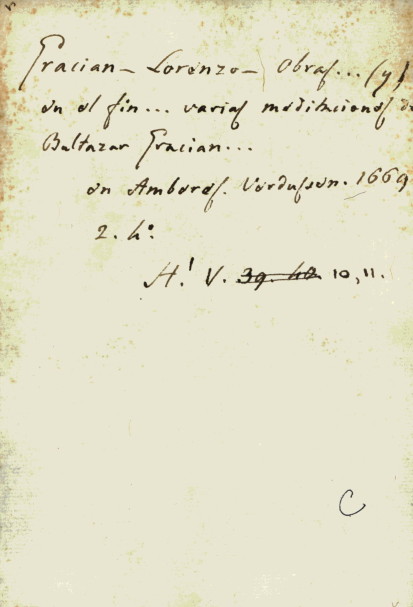 Gracian - Lorenzo - Obras... (y)
en el fin... varias meditaciones de
Baltazar Gracian...
en Amberes. Verdussen. 1669
2. 4º.
H.! V. 39. 40. 10, 11.
C